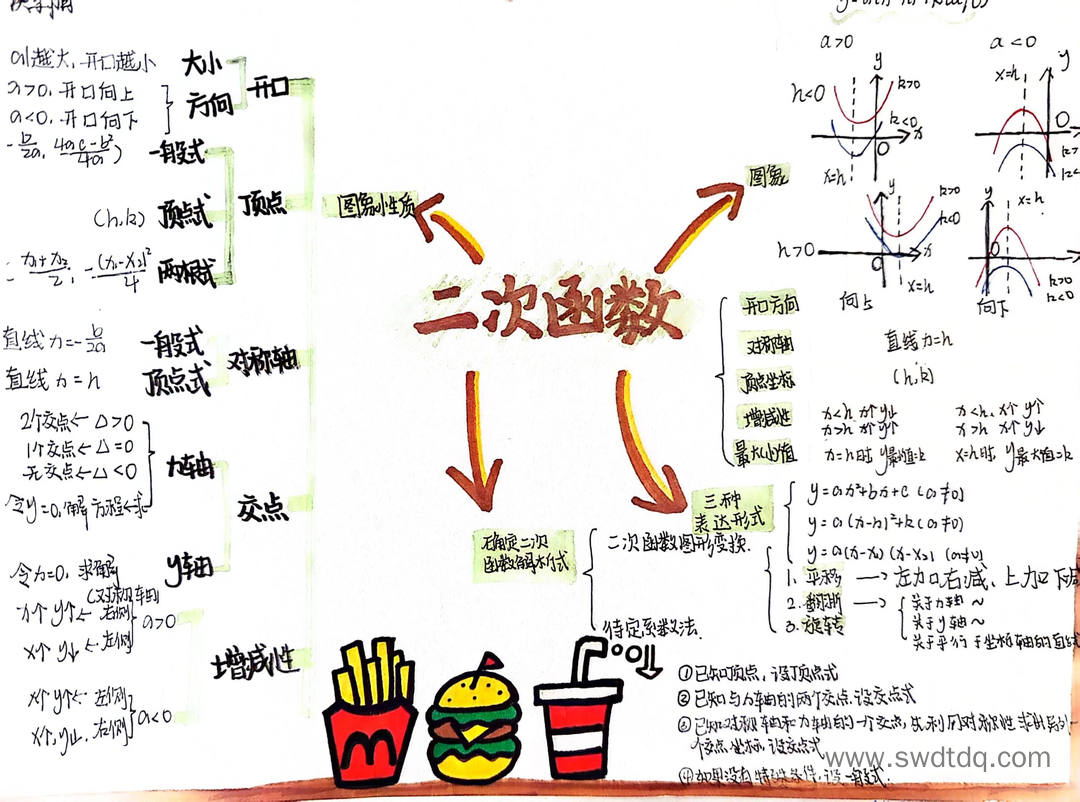 |a|越大,开口越小
大小
a>0,开口向上
方向
a<0,开口向下
开口
-b/2a, 4ac-b²/4a)
一般式
(h,k)
顶点式
顶点
两根式
图象性质
直线x=-b/2a
一般式
直线x=h
顶点式
对称轴
2个交点←△>0
1个交点←△=0
无交点←△<0
令y=0,解方程←求
x轴
交点
令x=0,求
y轴
(对称轴)
x↑ y↑←右侧
x↑ y↓←左侧
a>0
增减性
x↑ y↑←左侧
x↑,y↓,右侧
a<0
二次函数
图象
a>0
a<0
h<0
y
k>0
k<0
x
O
x=h
x=h
y
O
h>0
y
k>0
k<0
x
O
x=h
向上
y
x=h
O
k>0
k<0
向下
开口方向
对称轴
直线x=h
顶点坐标
(h,k)
增减性
x<h x↑y↓
x>h x↑y↑
x<h,x↑ y↑
x>h x↑ y↓
最大小值
x=h时 y最小值=k
x=h时 y最大值=k
三种
表达形式
y=ax²+bx+c (a≠0)
y=a(x-h)²+k (a≠0)
确定二次
函数解析式
二次函数图形变换.
1. 平移→左加右减、上加下减
2. 翻折→
关于x轴~
关于y轴~
关于平行于坐标轴的直线
3. 旋转
待定系数法.
①已知顶点,设顶点式
②已知与x轴的两个交点,设交点式
③已知对称轴和x轴的一个交点,先利用对称性求出另一
个交点坐标,设交点式
④如果没有特殊条件,设一般式.
www.swdtdq.com